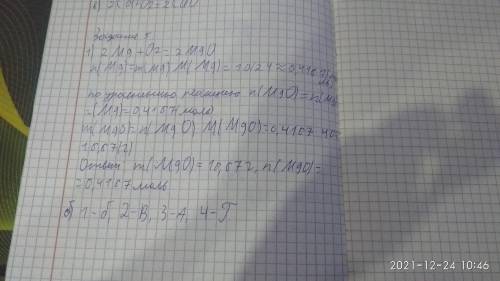 в) 2Cu+O2=2CuO
Задание 5
1) 2Mg+O2=2MgO
n(Mg)=m(Mg) M(Mg)=10/24≈0,4167
по уравнению реакции n(MgO)=n(Mg)
n(Mg)=0,4167 моль
m(MgO)=n(MgO) M(MgO)=0,4167 40=
16,67(г)
Ответ: m(MgO)=16,67 г, n(MgO)=
=0,4167 моль
б) 1-б, 2-В, 3-А, 4-Г
2021-12-24 10:46